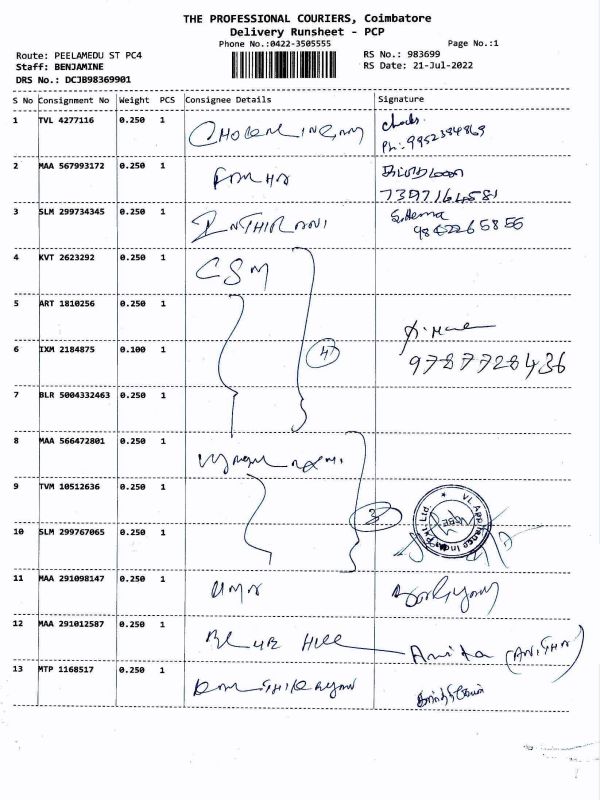 THE PROFESSIONAL COURIERS, Coimbatore
Delivery Runsheet - PCP
Phone No.:0422-3505555 Page No.:1
Route: PEELAMEDU ST PC4 RS No.: 983699
Staff: BENJAMINE RS Date: 21-Jul-2022
DRS No.: DCJB98369901
S No Consignment No Weight PCS Consignee Details Signature
1 TVL 4277116 0.250 1
Ph:9952394869
2 MAA 567993172 0.250 1
7397164581
3 SLM 299734345 0.250 1 INTHIRANI S.Hema
4 KVT 2623292 0.250 1 CSM
5 ART 1810256 0.250 1
6 IXM 2184875 0.100 1 4
9787728436
7 BLR 5004332463 0.250 1
8 MAA 566472801 0.250 1
9 TVM 10512636 0.250 1
3 VL Appliance Pvt. Ltd.
10 SLM 299767065 0.250 1
11 MAA 291098147 0.250 1 UMA
12 MAA 291012587 0.250 1 BLUE HILL Anitha (ANITHA)
13 MTP 1168517 0.250 1